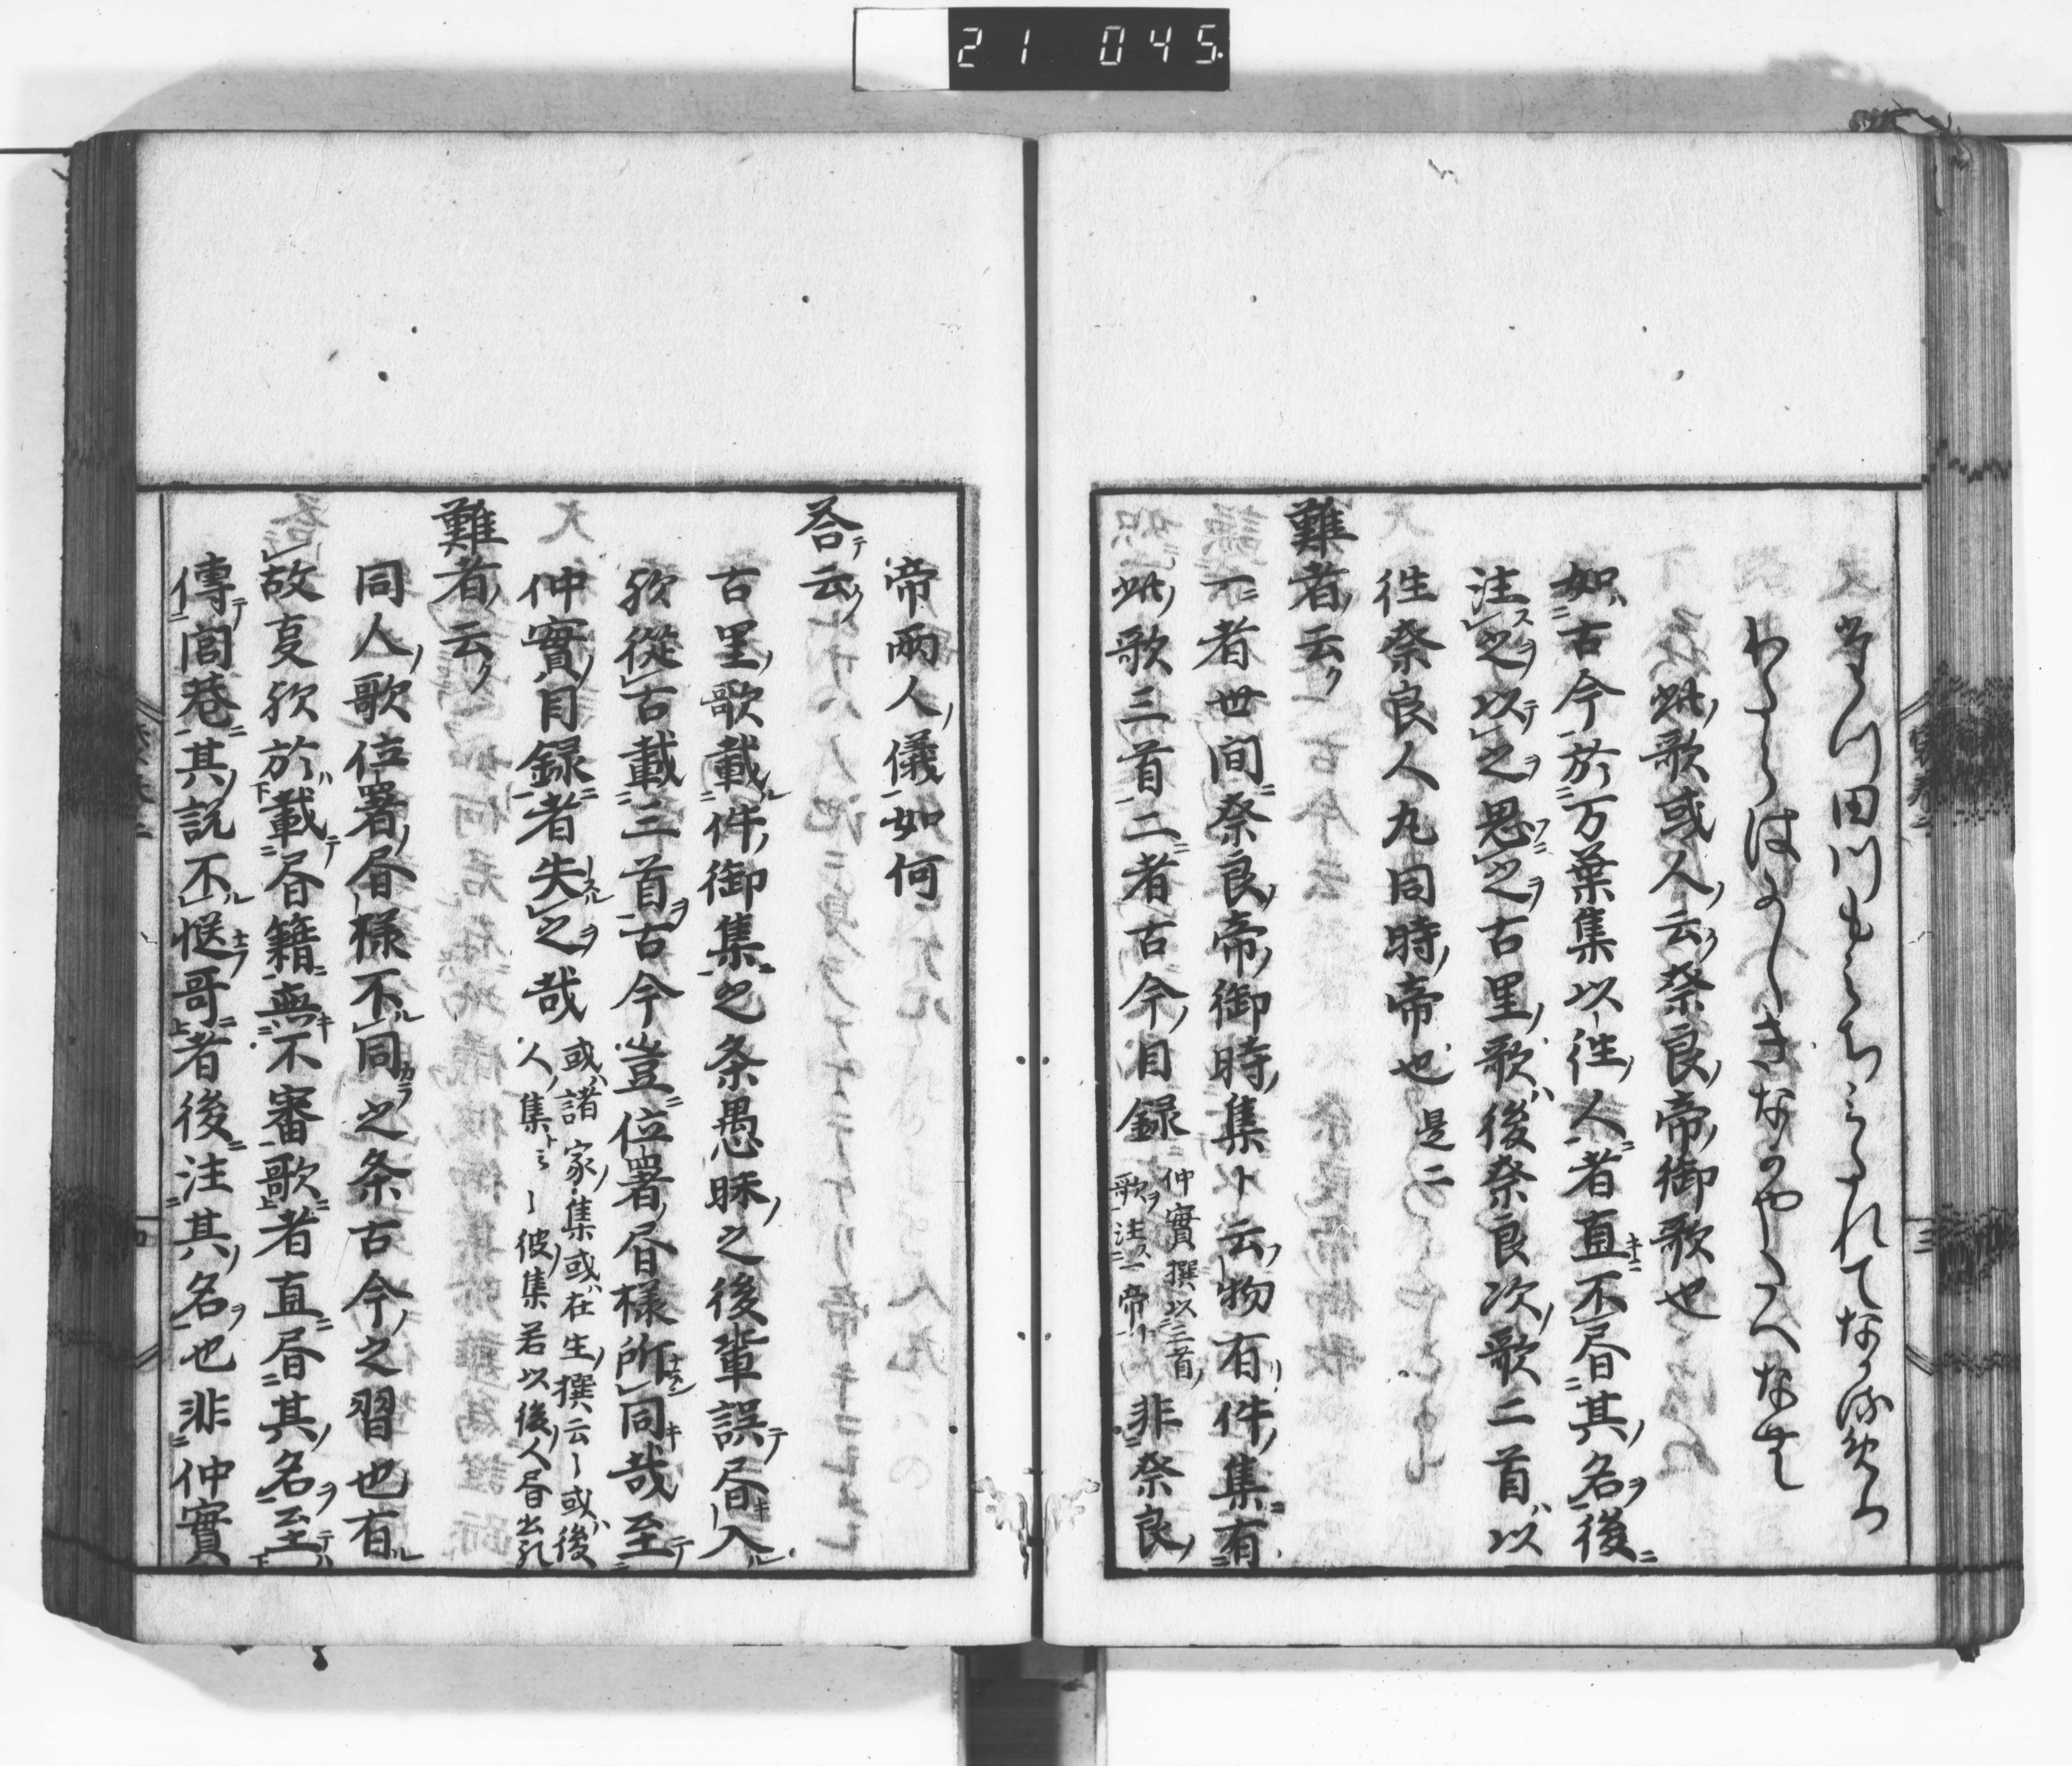 21 045
たつ田川もみちみたれてなかるめり
わたらはにしきなかやたへなむ
此歌或人云奈良帝御歌也
如古今於万葉集以往人者直不昼其名後
注之以之思之古里歌後奈良次歌二首以
往奈良人丸同時帝也是二
難者云
一者世間奈良帝御時集ト云物有件集有
此歌三首二者古今目録仲實撰以三首歌注一帝ト非奈良
帝兩人儀如何
荅云
古里歌載件御集之条愚昧之後輩誤昼入
欤從古載三首古今豈位署昼様所同哉至
仲實目録者失之哉或諸家集或在生撰云〻或後
人集トミ〻彼集若以後人昼出
難者云
同人歌位署昼様不同之条古今之習也有
故叓欤於載昼籍無不審歌者直昼其名至
傳閭巷其説不愜哥者後注其名也非仲實